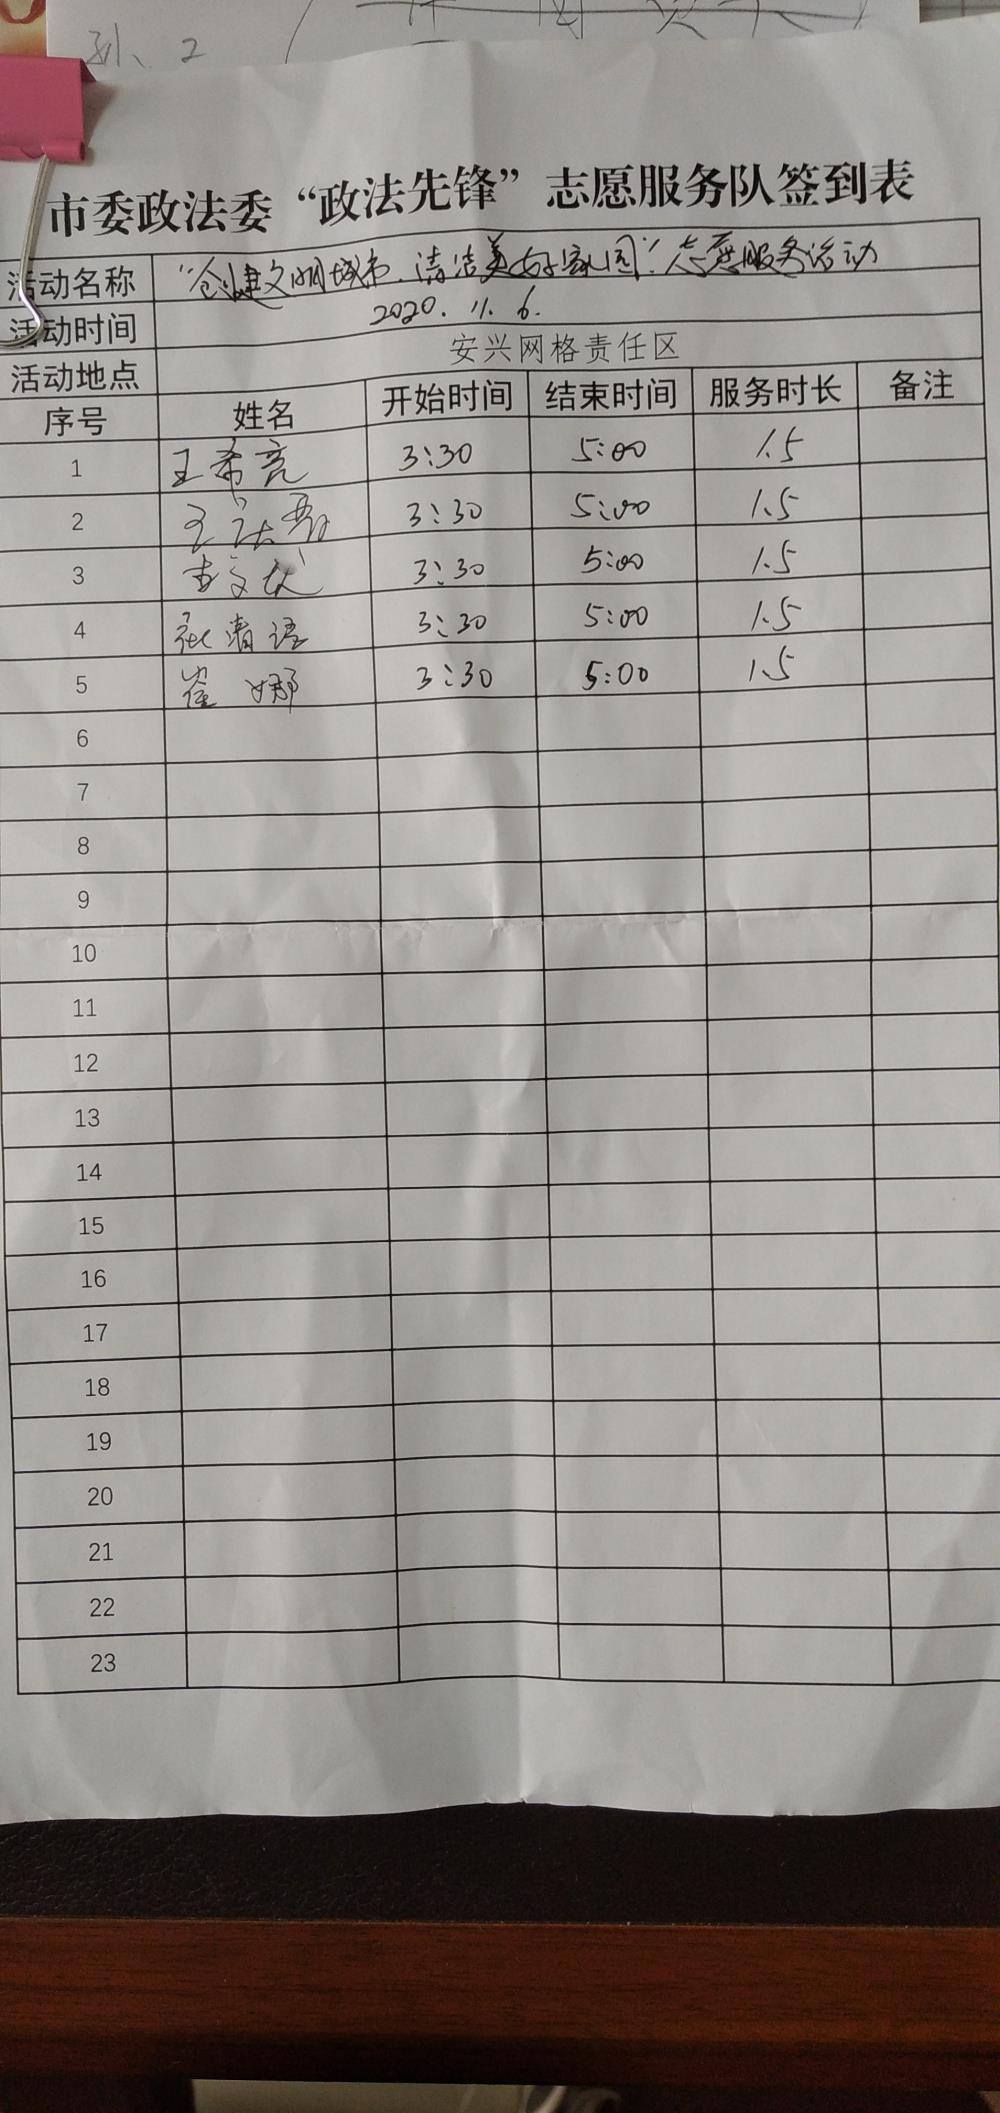 孙、2
市委政法委“政法先锋”志愿服务队签到表
活动名称 “创建文明城市、清洁美好家园”志愿服务活动
活动时间 2020.11.6.
活动地点 安兴网格责任区
序号 姓名 开始时间 结束时间 服务时长 备注
1 王希亮 3:30 5:00 1.5
2 3:30 5:00 1.5
3 3:30 5:00 1.5
4 张清语 3:30 5:00 1.5
5 崔娜 3:30 5:00 1.5
6
7
8
9
10
11
12
13
14
15
16
17
18
19
20
21
22
23